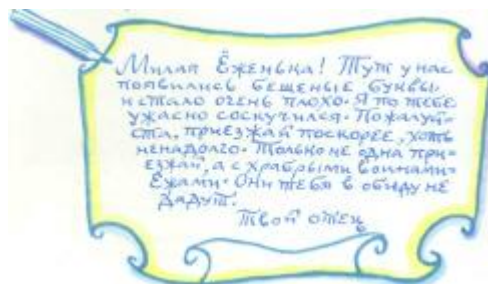 Милая Ёженька! Тут у нас
появились бешеные буквы.
и стало очень плохо. Я по тебе
ужасно соскучился. Пожалуй-
ста, приезжай поскорее, хоть
ненадолго. Только не одна при-
езжай, а с храбрыми воинами-
Ежами. Они тебя в обиду не
дадут.
Твой отец